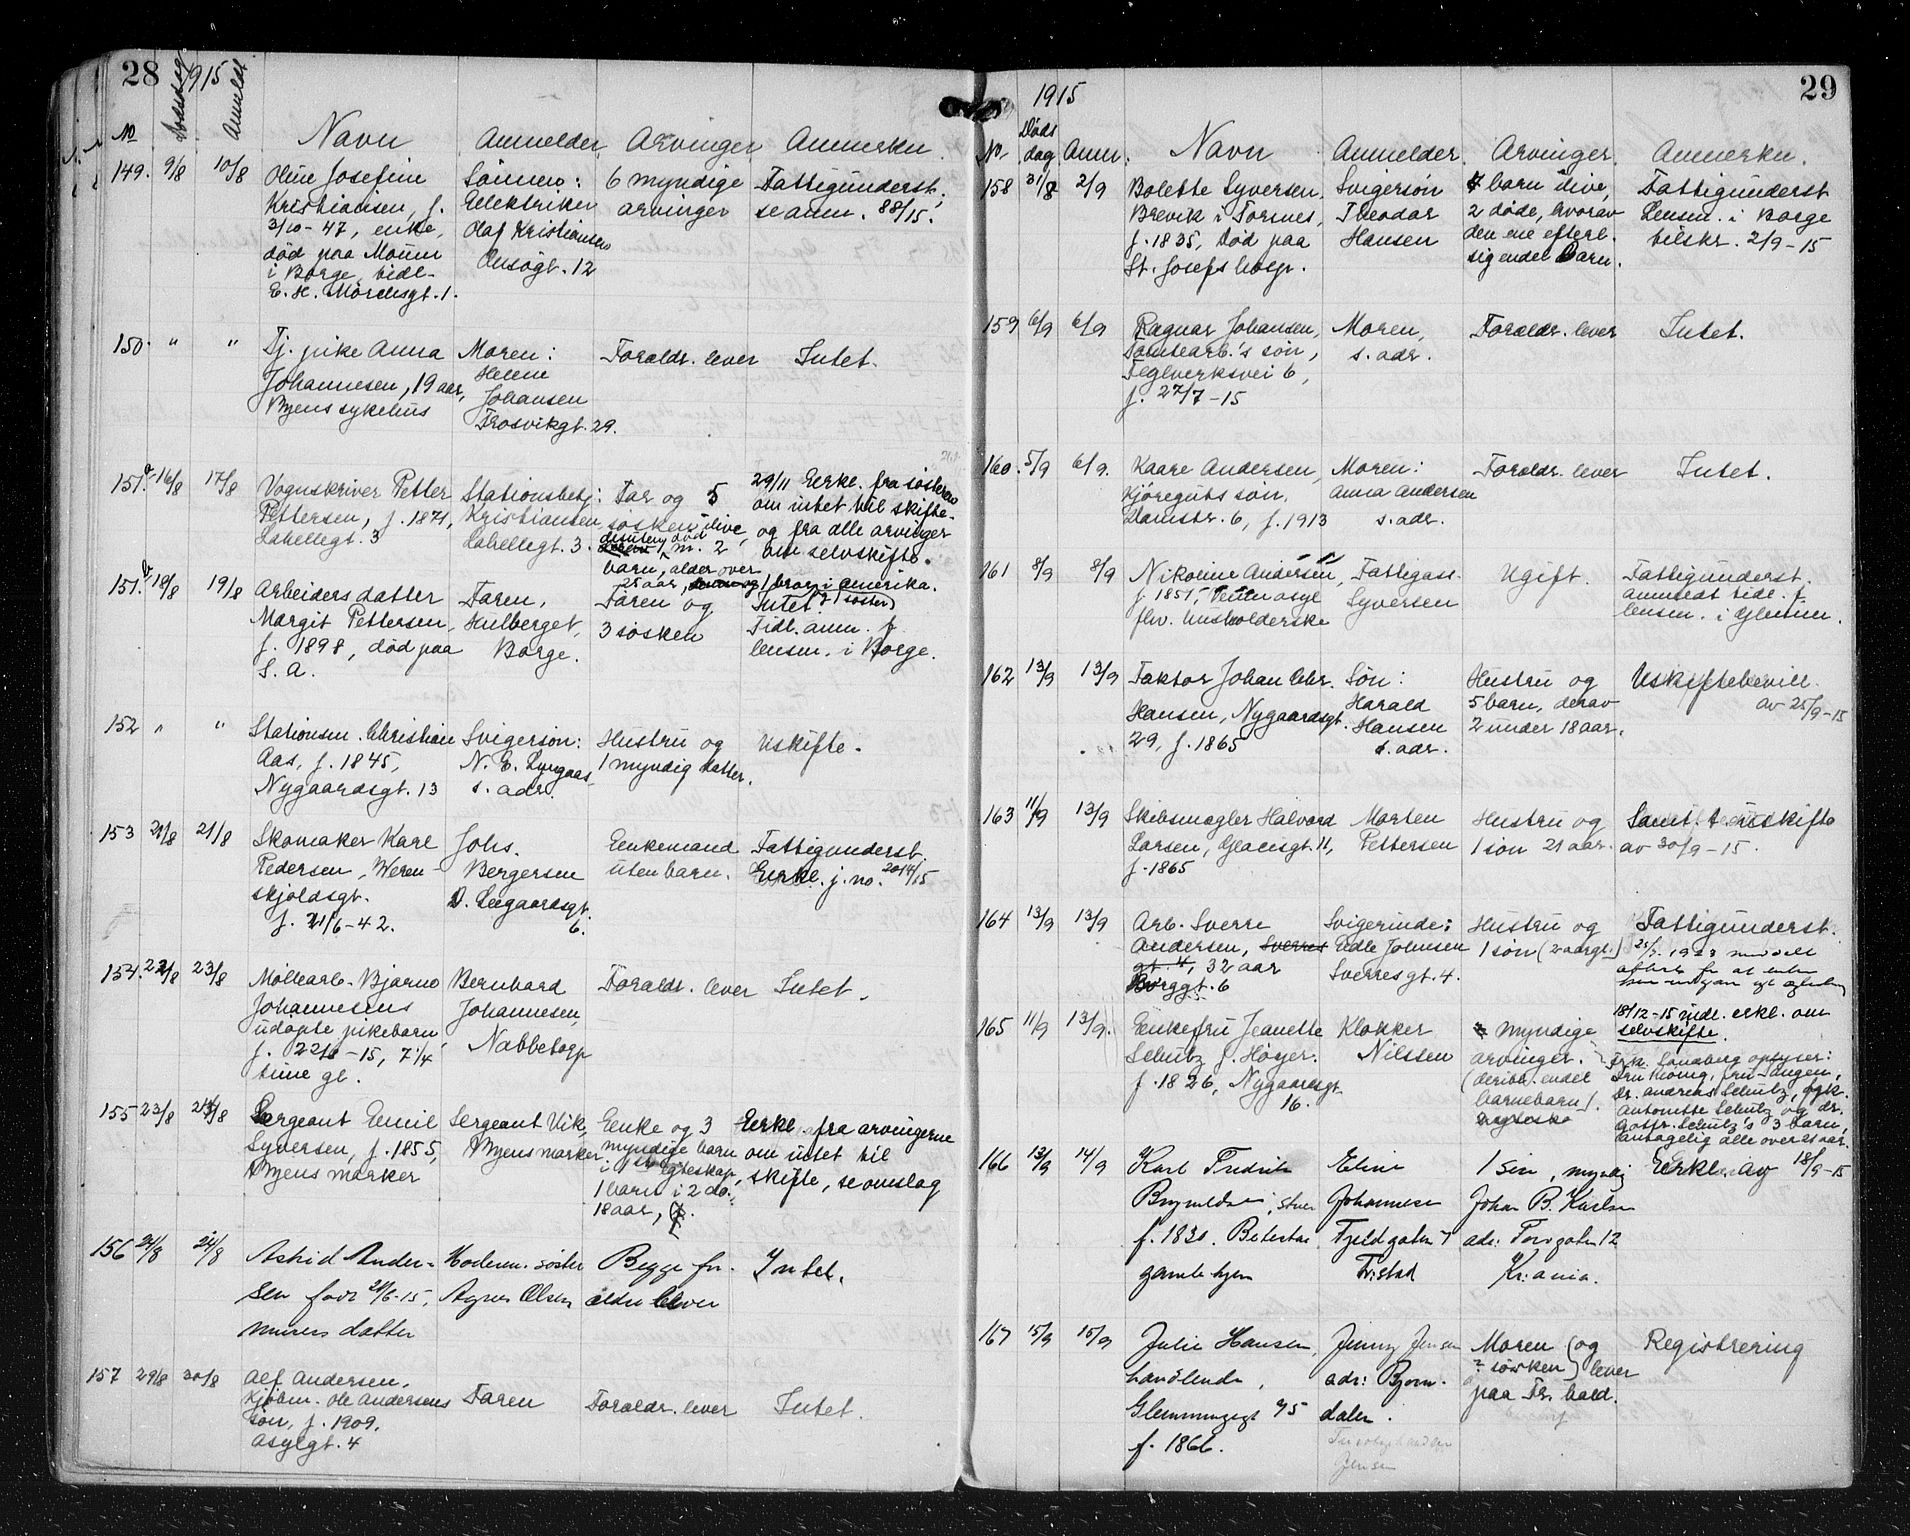 28
1915
Dødsdag
Anmeldt
No
Navn Anmelder Arvinger Anmerkn.
149. 9/8 10/8 Oline Josefine Sönnen: 6 myndige Fattigunderst.
Kristiansen, f. Elektriker arvinger se anm. 88/15.
3/10-47, enke, Olaf Kristiansen
død paa Moum Ensogt. 12
i Borge, tidl.
E. H. Mörchsgt. 1.
150. " " Tj. pike Anna Moren: Foraldr. lever Intet.
Johannesen, 19 aar, Helene
Byens sykehus Johansen
Trosvikgt. 29.
151.a 16/8 17/8 Vognskriver Petter Stationsbetj: Far og 5 29/11 Erkl. fra søsteren
Pettersen, f. 1871, Kristiansen søsken ilive, om intet til skifte
Labellegt. 3 Labellegt. 3. desuten død og fra alle arvinger
1, m. 2 om selvskifte.
barn, alder over
25 aar, 1 bror i Amerika.
151.b 18/8 19/8 Arbeiders datter Faren, Faren og Intet. (søster)
Margit Pettersen, Hulberget, 3 søsken Tidl. anm. f.
f. 1898, død paa Borge. lensm. i Borge.
S. A.
152 " " Stationsm. Christian Svigersøn: Hustru og Uskifte.
Aas, f. 1845, N. E. Lyngaas 1 myndig datter.
Nygaardsgt. 13 s. adr.
153 21/8 21/8 Skomaker Karl Johs. Enkemand Fattigunderst.
Pedersen, Weren- Bergersen uten barn. Erkl. j. no. 2014/15
skjoldsgt. O. Leegaardsgt.
f. 21/6-42. 6.
154. 22/8 23/8 Møllearb. Bjarne Bernhard Foraldr. lever Intet.
Johannesens Johannesen,
udøpte pikebarn, Nabbetorp
f. 22/8-15, 7 1/4
time gl.
155 23/8 24/8 Sergeant Emil Sergeant Vik, Enke og 3 Erkl. fra arvingerne
Syversen, f. 1855, Byens marker myndige barn om intet til
Byens marker i 1ste egteskap, skifte, se omslag
1 barn i 2 do.,
18 aar,
156 24/8 24/8 Astrid Ander- Moderen. søster Begge for- Intet.
sen født 24/6-15, Agnes Olsen ældre lever
murers datter
157 29/8 30/8 Alf Andersen,
Kjøbm. Ole Andersens Faren Foraldr. lever Intet.
søn, f. 1909,
Asylgt. 4
29
1915
No. Dødsdag Anm. Navn Anmelder. Arvinger. Anmerkn.
158 31/8 2/9 Bolette Syversen, Svigersøn 7 barn ilive, Fattigunderst
Brevik i Torsnes, Theodor 2 døde, hvorav Lensm. i Borge
f. 1835, død paa Hansen den ene efterl. tilskr. 2/9-15
St. Josefs hosp. sig endel barn.
159 6/9 6/9 Ragnar Johansen, Moren, Foraldr. lever Intet.
Tomtearb.'s søn, s. adr.
Teglverksvei 6,
f. 27/7-15
160. 5/9 6/9. Kaare Andersen, Moren: Foraldr. lever Intet.
Kjøreguts søn, Anna Andersen
Damstr. 6, f. 1913 s. adr.
161 8/9 8/9 Nikoline Andersen, Fattigass. Ugift. Fattigunderst.
f. 1851, asyl Syversen anmeldt tidl. f.
fhv. husholderske lensm. i Glemmen.
162 13/9 13/9 Faktor Johan Chr. Søn: Hustru og Uskiftebevill.
Hansen, Nygaardsgt. Harald 5 barn, derav av 25/9-15
29, f. 1865 Hansen 2 under 18 aar.
s. adr.
163 11/9 13/9 Skibsmægler Halvard Morten Hustru og Samt. t. uskifte
Larsen, Glacisgt. 11, Pettersen 1 søn 21 aar. av 30/9-15.
f. 1865
164 13/9 13/9 Arb. Sverre Svigerinde: Hustru og Fattigunderst.
Andersen, Sverres Edle Johnsen 1 søn (2 aar gl.)
gt. 4, 32 aar Sverresgt. 4.
Borggt. 6
165 11/9 13/9. Enkefru Jeanette Klokker myndige 18/12-15 indl. erkl. om
Schultz f. Høyer. Nilssen arvinger. selvskifte.
f. 1826, Nygaardsgt. (deribl. endel Frk. Sandberg oplyser:
16. barnebarn). Fru König, fru Tangen,
Dr. Andreas Schultz, frk.
Antonette Schultz og dr.
Gottfr. Schultz's 3 barn,
antagelig alle over 21 aar.
166 13/9 14/9 Karl Fredrik Eline 1 søn, myndig Erkl. av 18/9-15
Brynildsen, Johannesen Johan B. Karlsen
f. 1830. Fjeldgaten 7 adr: Torvgaten 12
gamle hjem Fr:stad Kr:ania.
167 15/9 15/9 Julie Hansen, Jenny Jensen Moren (og Registrering
handlende, adr: Bjørn- ? søsken) lever
Glemmengt 75 dalen. paa Fr. hald.
f. 1866.
Jensen